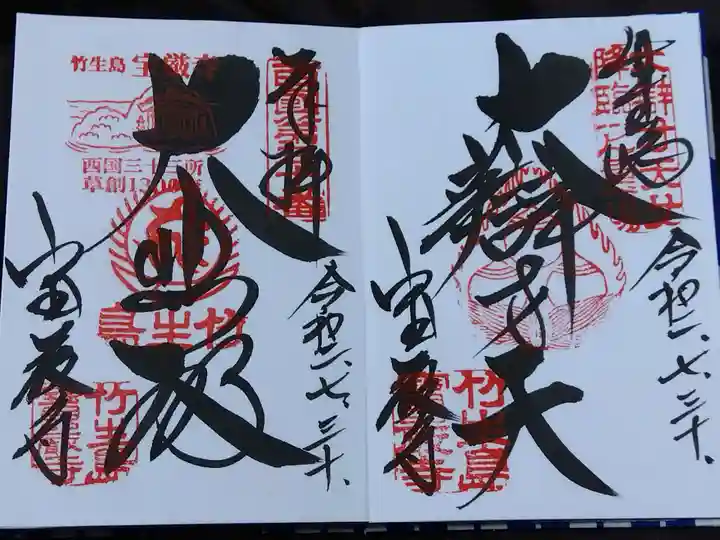 竹生島
大辯才天
宝厳寺
令和二、七、三十、
竹生島
奉拝
大悲殿
宝厳寺
令和二、七、三十、
竹生島 宝厳寺
西国三十三所
草創13
竹生島
竹生島